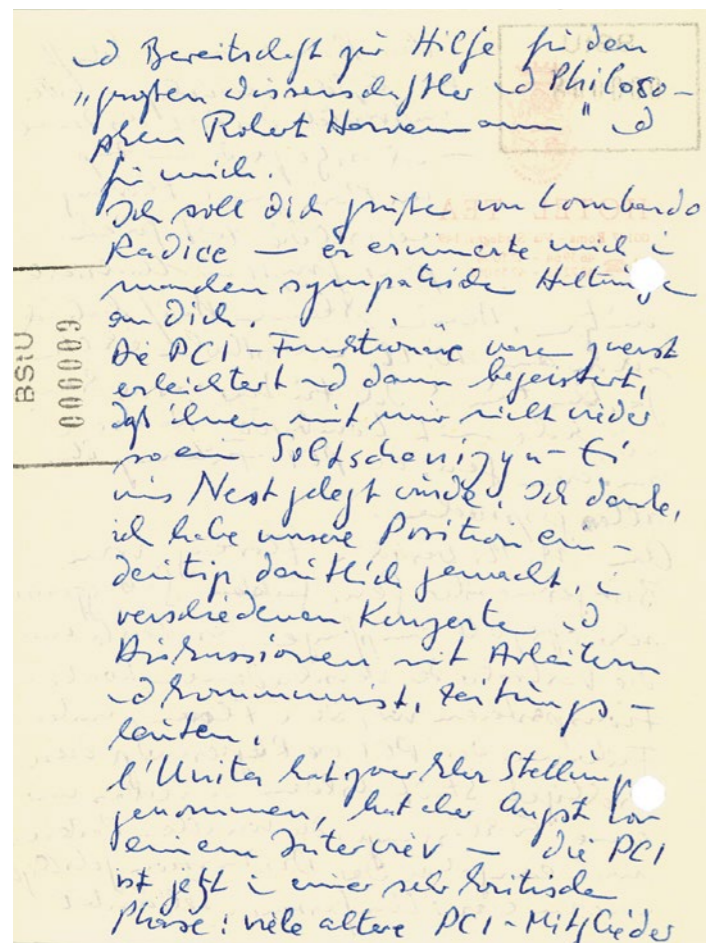 und Bereitschaft zur Hilfe für den
"großen Wissenschaftler und Philoso-
phen Robert Havemann" und
für mich.
Ich soll Dich grüßen von Lombardo
Radice — er erinnerte mich in
manchen sympatischen Haltungen
an Dich.
Die PCI-Funktionäre waren zuerst
erleichtert und dann begeistert,
daß ihnen mit mir nicht wieder
so ein Soltschenizyn-Ei
ins Nest gelegt wurde. Ich denke,
ich habe unsere Position ein-
deutig deutlich gemacht, in
verschiedenen Konzerten und
Diskussionen mit Arbeitern
und kommunist. Zeitungs-
leuten.
l'Unita hat zwar klar Stellung
genommen, hat aber Angst vor
einem Interview — die PCI
ist jetzt in einer sehr kritischen
Phase: viele ältere PCI-Mitglieder
BStU
000009
HOTEL